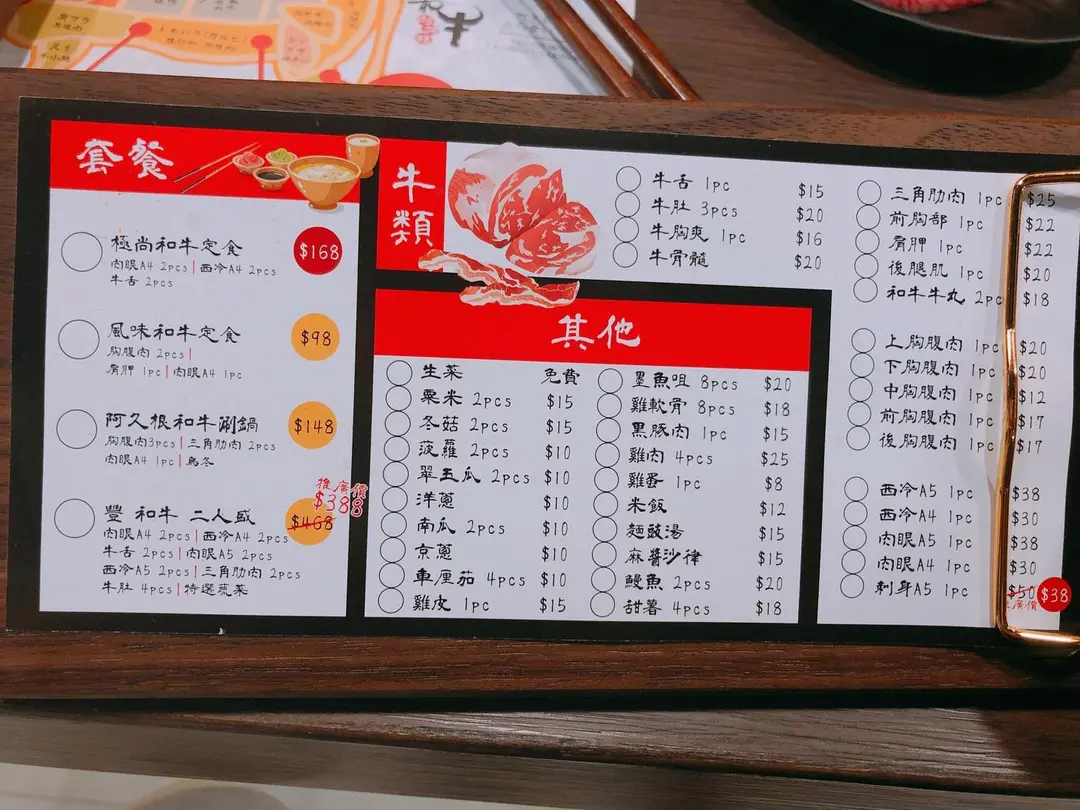 和牛
套餐
極尚和牛定食 $168
肉眼A4 2pcs | 西冷A4 2pcs
牛舌 2pcs
風味和牛定食 $98
胸腹肉 2pcs |
肩胛 1pc | 肉眼A4 1pc
阿久根和牛涮鍋 $148
胸腹肉3pcs | 三角肋肉 2pcs
肉眼A4 1pc | 烏冬
推廣價
$388
豐 和牛 二人盛 $468
肉眼A4 2pcs | 西冷A4 2pcs
牛舌 2pcs | 肉眼A5 2pcs
西冷A5 2pcs | 三角肋肉 2pcs
牛肚 4pcs | 特選蔬菜
牛類
牛舌 1pc $15
牛肚 3pcs $20
牛胸爽 1pc $16
牛骨髓 $20
三角肋肉 1pc $25
前胸部 1pc $22
肩胛 1pc $22
後腿肌 1pc $20
和牛牛丸 2pc $18
上胸腹肉 1pc $20
下胸腹肉 1pc $20
中胸腹肉 1pc $12
前胸腹肉 1pc $17
後胸腹肉 1pc $17
西冷A5 1pc $38
西冷A4 1pc $30
肉眼A5 1pc $38
肉眼A4 1pc $30
刺身A5 1pc $50 $38
廣價
其他
生菜 免費
粟米 2pcs $15
冬菇 2pcs $15
菠蘿 2pcs $10
翠玉瓜 2pcs $10
洋蔥 $10
南瓜 2pcs $10
京蔥 $10
車厘茄 4pcs $10
雞皮 1pc $15
墨魚咀 8pcs $20
雞軟骨 8pcs $18
黑豚肉 1pc $15
雞肉 4pcs $25
雞蛋 1pc $8
米飯 $12
麵豉湯 $15
麻醬沙律 $15
鰻魚 2pcs $20
甜薯 4pcs $18